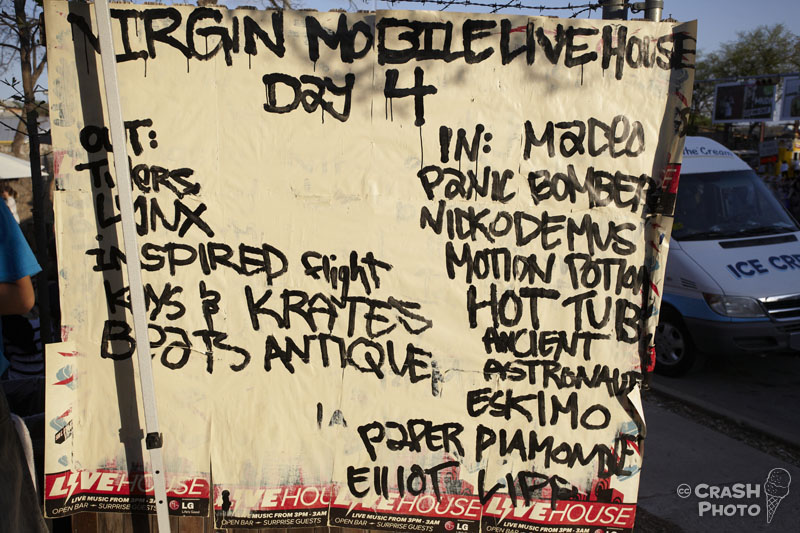 VIRGIN MOBILE LIVE HOUSE
Day 4
OUT:
TIGERS,
LYNX
INSPIRED FLIGHT
KEYS & KRATES
BEATS ANTIQUE
IN: MADEO
PANIC BOMBER
NICKODEMUS
MOTION POTION
HOT TUB
ANCIENT
ASTRONAUT
ESKIMO
PAPER DIAMOND
ELLIOT LIPP
LIVEHOUSE
LIVE MUSIC FROM 3PM - 3AM
OPEN BAR SURPRISE GUESTS
LG
LIVEHOUSE
LIVE MUSIC FROM 3PM - 3AM
OPEN BAR SURPRISE GUESTS
LIVEHOUSE
LIVE MUSIC FROM 3PM - 3AM
OPEN BAR SURPRISE GUESTS
LG
LIVEHOUSE
LIVE MUSIC FROM 3PM - 3AM
OPEN BAR SURPRISE GUESTS
LG
the Cream
ICE CRE
cc CRASH
PHOTO